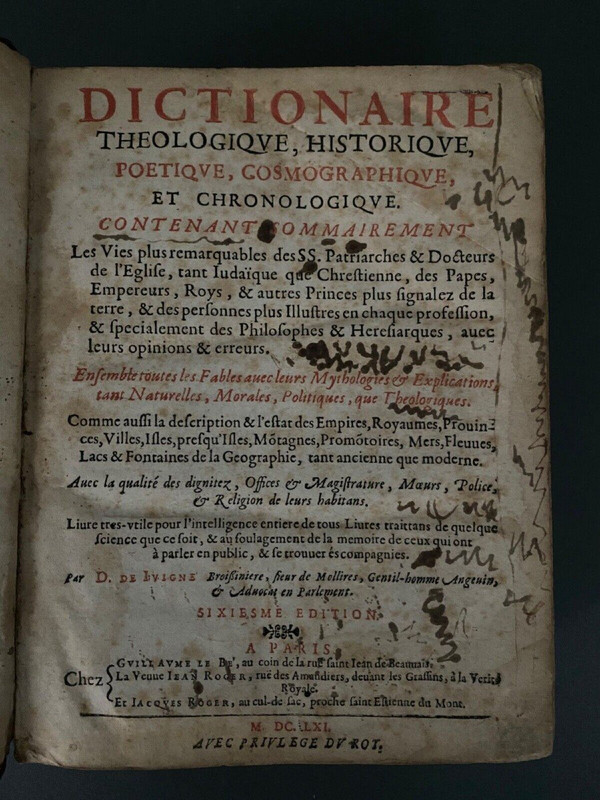 DICTIONAIRE
THEOLOGIQVE, HISTORIQVE,
POETIQVE, COSMOGRAPHIQVE,
ET CHRONOLOGIQVE.
CONTENANT SOMMAIREMENT
Les Vies plus remarquables des SS. Patriarches & Docteurs
de l'Eglise, tant Iudaïque que Chrestienne, des Papes,
Empereurs, Roys, & autres Princes plus signalez de la
terre, & des personnes plus Illustres en chaque profession,
& specialement des Philosophes & Heresiarques, auec
leurs opinions & erreurs.
Ensemble toutes les Fables auec leurs Mythologies & Explications,
tant Naturelles, Morales, Politiques, que Theologiques.
Comme aussi la description & l'estat des Empires, Royaumes, Prouin-
ces, Villes, Isles, presqu'Isles, Mõtagnes, Promõtoires, Mers, Fleuues,
Lacs & Fontaines de la Geographie, tant ancienne que moderne.
Auec la qualité des dignitez, Offices & Magistrature, Mœurs, Police,
& Religion de leurs habitans.
Liure tres-vtile pour l'intelligence entiere de tous Liures traittans de quelque
science que ce soit, & au soulagement de la memoire de ceux qui ont
à parler en public, & se trouuer és compagnies.
Par D. DE IVIGNE Broissiniere, sieur de Mollires, Gentil-homme Angeuin,
& Aduocat en Parlement.
SIXIESME EDITION.
A PARIS,
Chez
GVILLAVME LE BE', au coin de la ruë saint Iean de Beauuais.
La Veuue IEAN ROGER, ruë des Amandiers, deuant les Grassins, à la Verité
Royale.
Et IACQVES ROGER, au cul-de-sac, proche saint Estienne du Mont.
M. DC. LXI.
AVEC PRIVLEGE DV ROY.